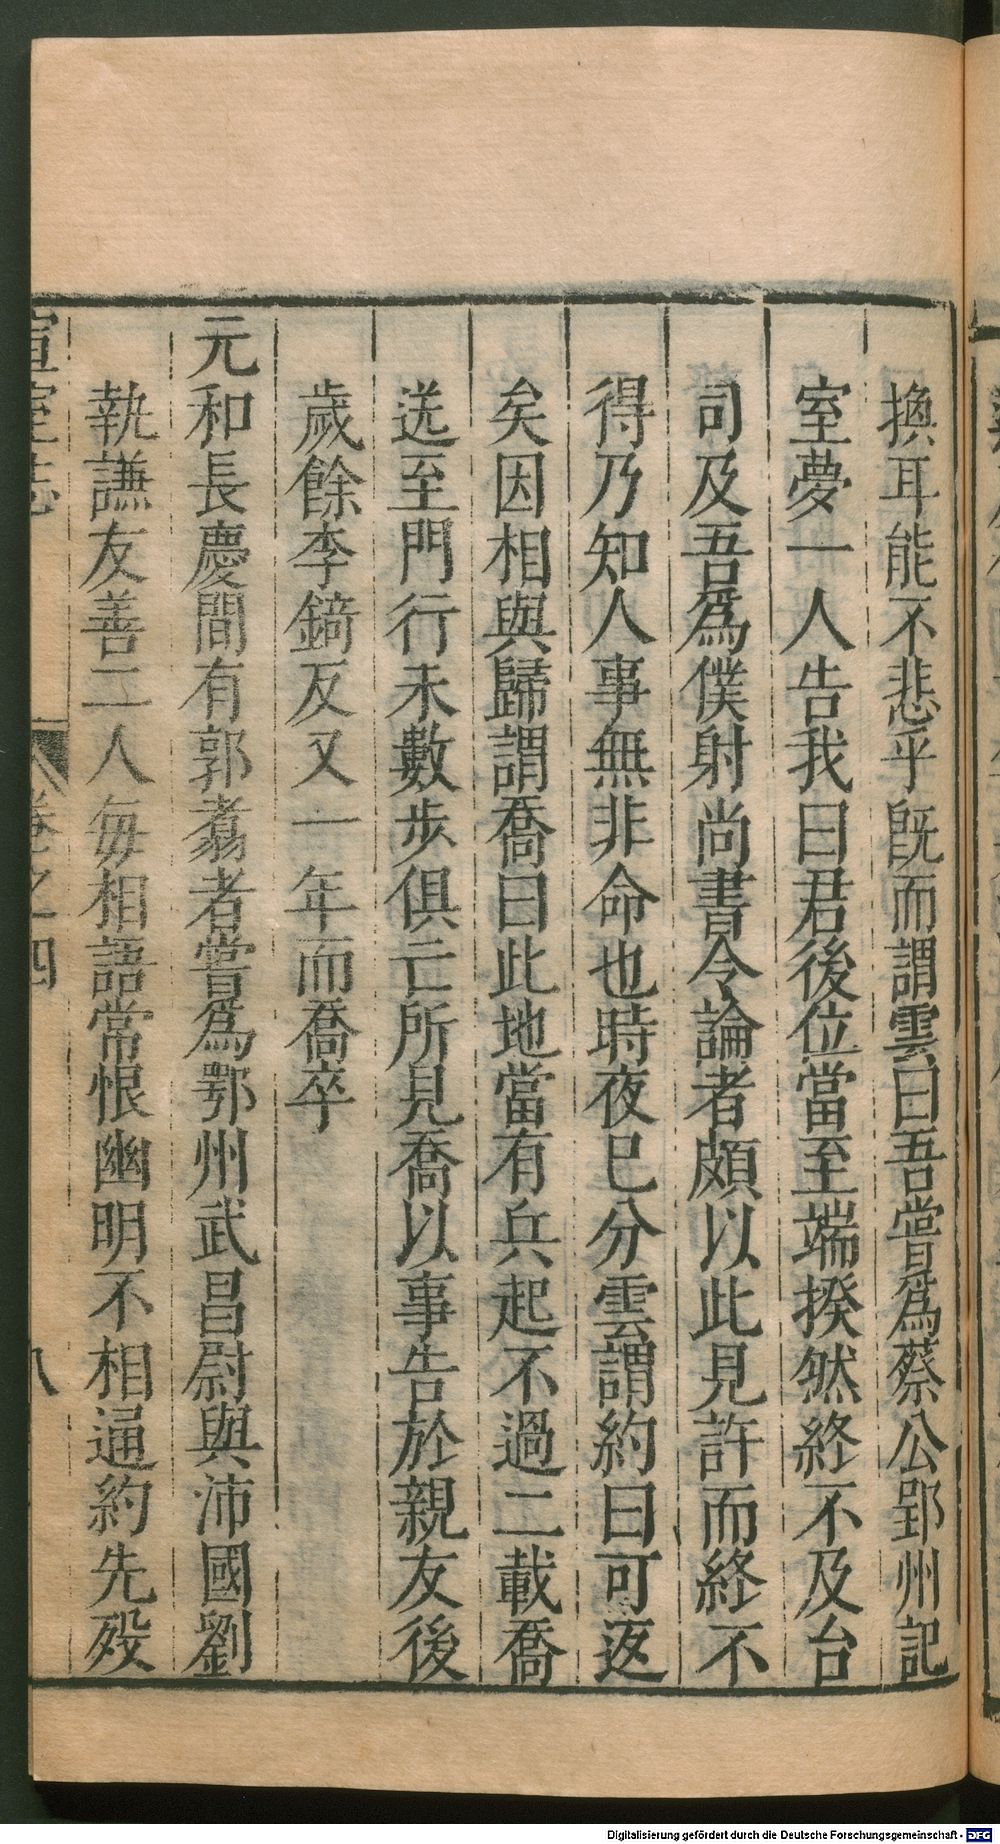 換耳能不悲乎旣而謂雲曰吾嘗爲蔡公郢州記
室夢一人告我曰君後位當至端揆然終不及台
司及吾爲僕射尚書令論者頗以此見許而終不
得乃知人事無非命也時夜巳分雲謂約曰可返
矣因相與歸謂喬曰此地當有兵起不過二載喬
送至門行未數步俱亡所見喬以事告於親友後
歲餘李錡反又一年而喬卒
元和長慶間有郭翥者嘗爲鄂州武昌尉與沛國劉
執謙友善二人每相語常恨幽明不相通約先殁
宣室志 卷之四 八
Digitalisierung gefördert durch die Deutsche Forschungsgemeinschaft - DFG